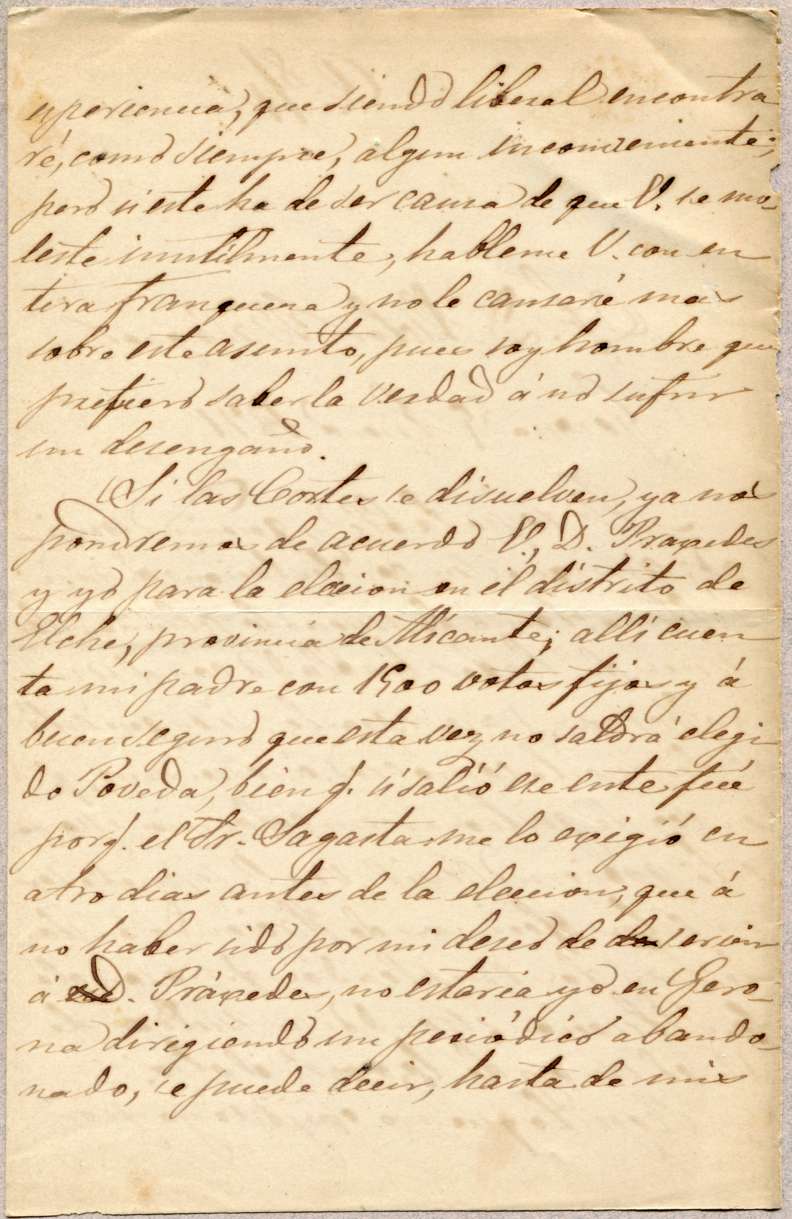 esperiencia, que siendo liberal encontra
ré, como siempre, algun inconveniente;
pero si este ha de ser causa de que V. se mo-
leste inutilmente, hableme V. con en
tera franqueza y no le cansaré mas
sobre este asunto, pues soy hombre que
prefiero saber la verdad á no sufrir
un desengaño.
Si las Cortes se disuelven, ya nos
pondremos de acuerdo V., D. Praxedes
y yo para la eleccion en el distrito de
Elche, provincia de Alicante; allí cuen
ta mi padre con 1500 votos fijos y á
buen seguro que esta vez no saldrá elegi
do Poveda, bien q. si salió ese ente fué
porq. el Sr. Sagasta me lo exigió cu
atro dias antes de la eleccion, que á
no haber sido por mi deseo de servir
á D. Práxedes, no estaria yo en Gero-
na dirigiendo un periódico abando-
nado, se puede decir, hasta de mis